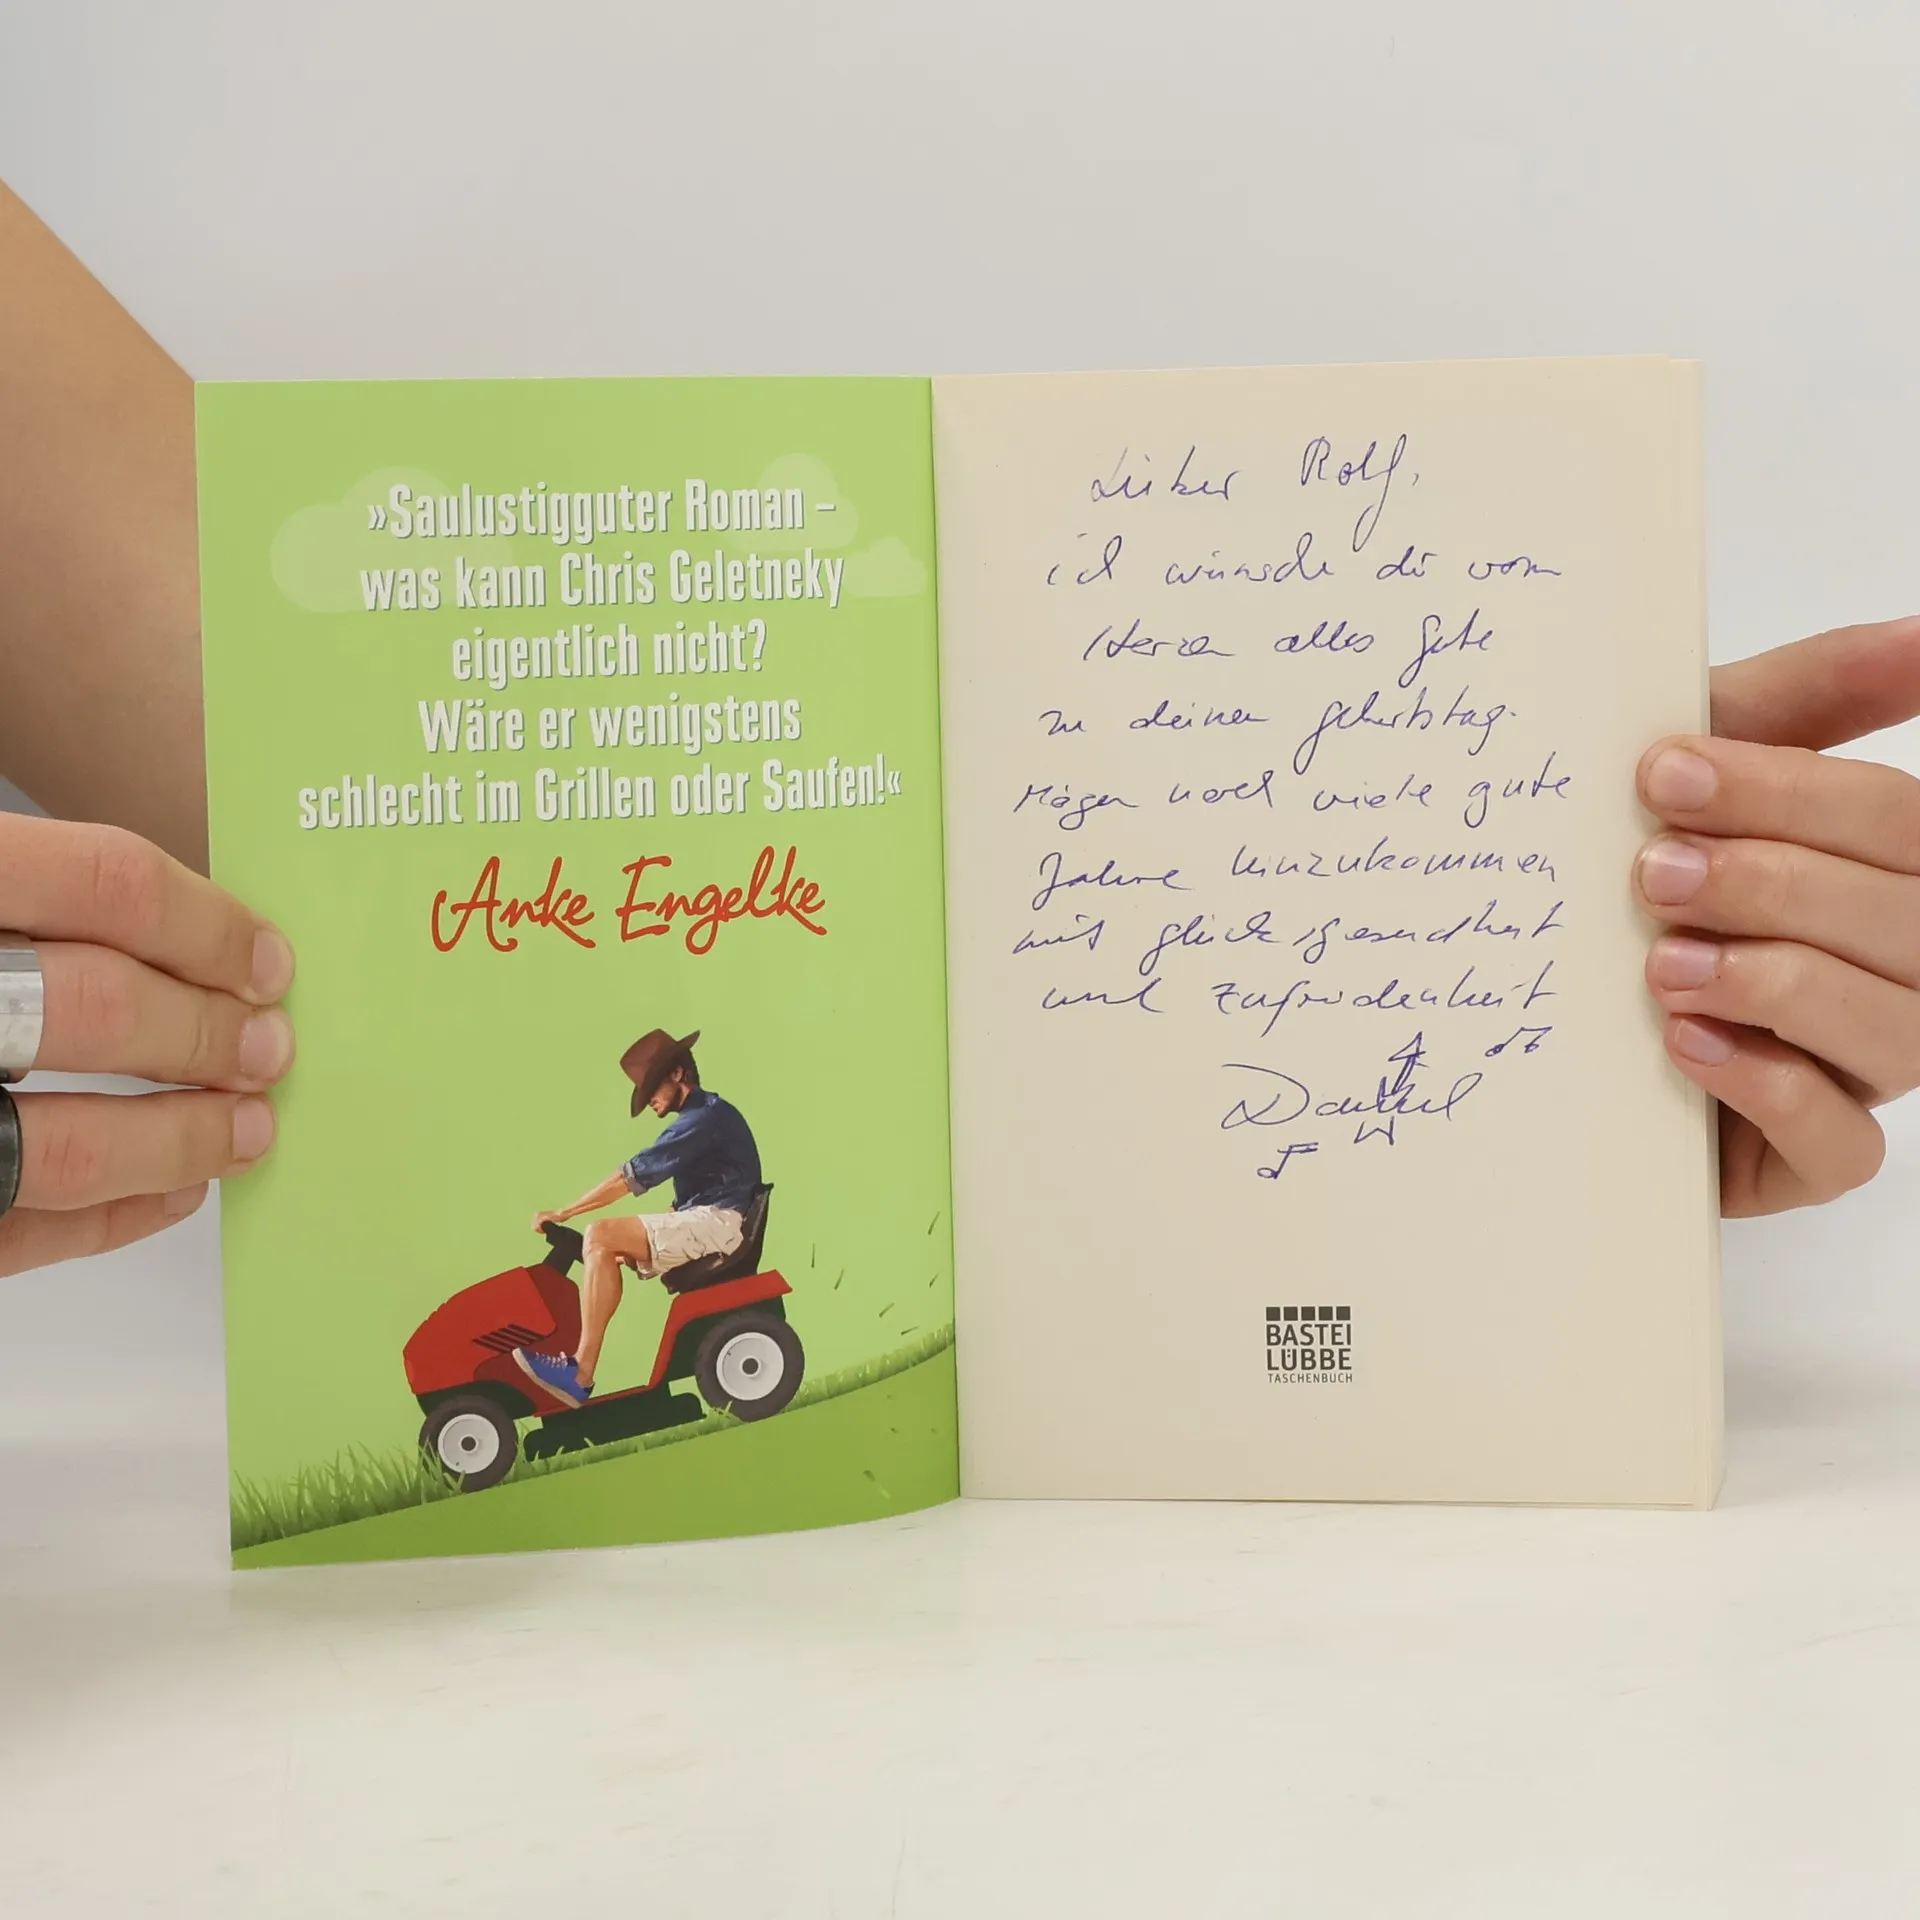 »Saulustigguter Roman –
was kann Chris Geletneky
eigentlich nicht?
Wäre er wenigstens
schlecht im Grillen oder Saufen!«
Anke Engelke
Lieber Rolf,
ich wünsche dir vom
Herzen alles gute
zu deinen geburtstag.
Mögen noch viele gute
Jahre hinzukommen
mit glück, gesundheit
und Zufriedenheit
Daniel
BASTEI
LÜBBE
TASCHENBUCH